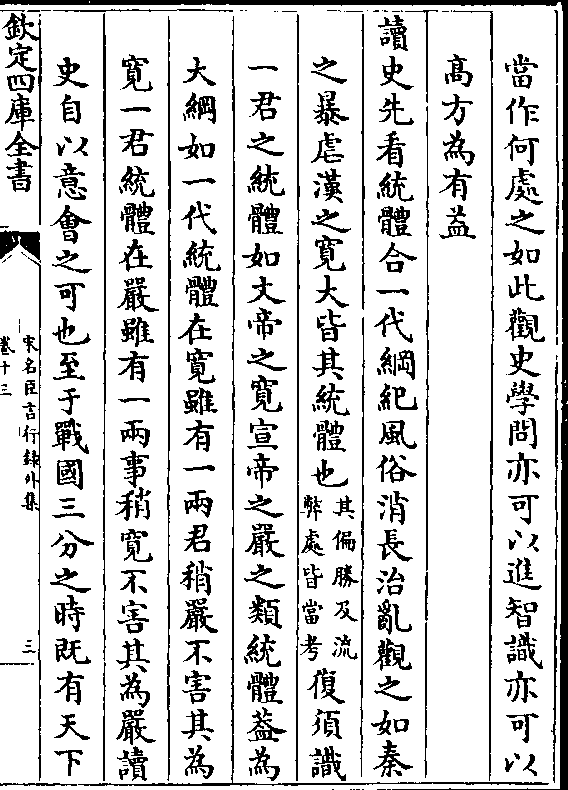 當作何處之如此觀史學問亦可以進智識亦可以
高方為有益
讀史先看統體合一代綱紀風俗消長治亂觀之如秦
之暴虐漢之寛大皆其統體也其偏勝及流弊處皆當考復須識
一君之統體如文帝之寛宣帝之嚴之類統體葢為
大綱如一代統體在寛雖有一兩君稍嚴不害其為
寛一君統體在嚴雖有一兩事稍寛不害其為嚴讀
史自以意會之可也至于戰國三分之時既有天下
欽定四庫全書
宋名臣言行録外集
卷十三
三